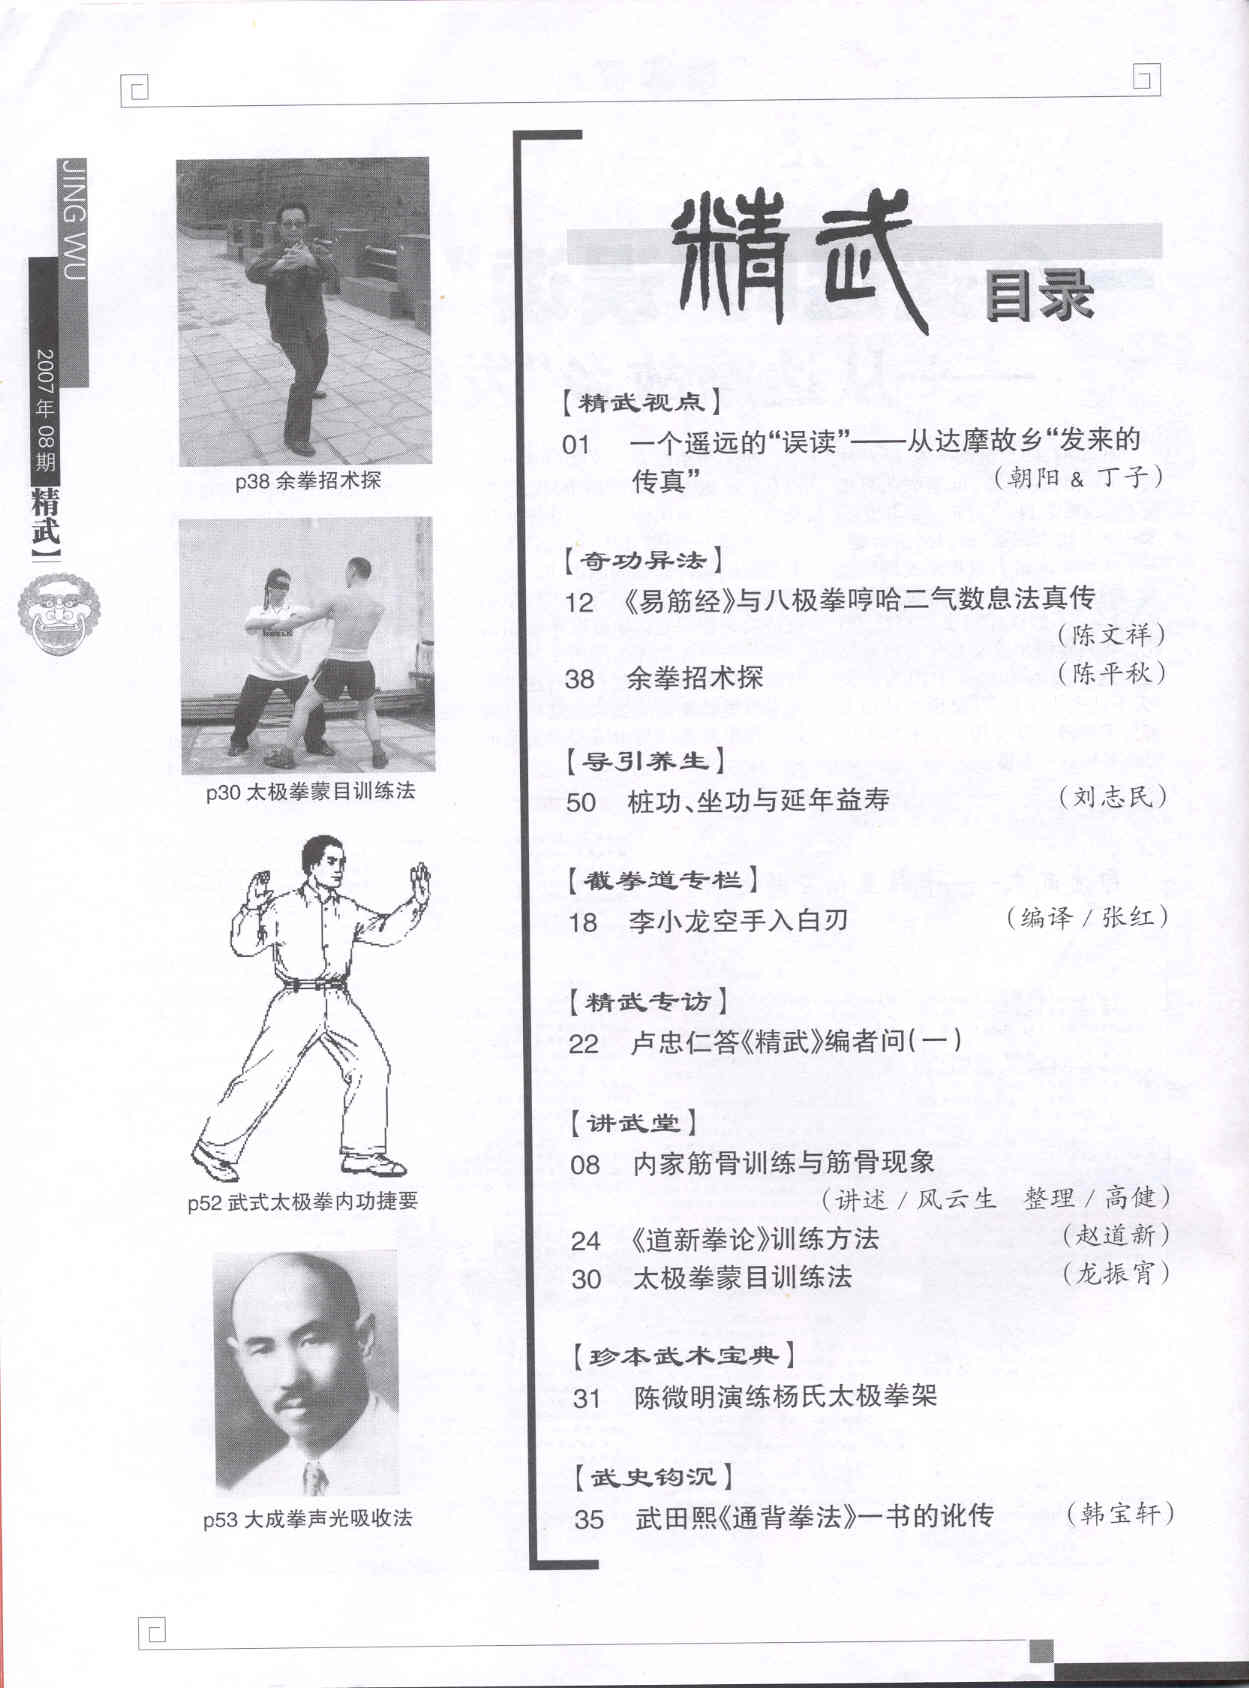 JING WU
2007年08期
精武】
p38 余拳招术探
p30 太极拳蒙目训练法
p52 武式太极拳内功捷要
p53 大成拳声光吸收法
精武
目录
【精武视点】
01 一个遥远的“误读”——从达摩故乡“发来的
传真” （朝阳 & 丁子）
【奇功异法】
12 《易筋经》与八极拳哼哈二气数息法真传
（陈文祥）
38 余拳招术探 （陈平秋）
【导引养生】
50 桩功、坐功与延年益寿 （刘志民）
【截拳道专栏】
18 李小龙空手入白刃 （编译 / 张红）
【精武专访】
22 卢忠仁答《精武》编者问(一)
【讲武堂】
08 内家筋骨训练与筋骨现象
（讲述 / 风云生 整理 / 高健）
24 《道新拳论》训练方法 （赵道新）
30 太极拳蒙目训练法 （龙振宵）
【珍本武术宝典】
31 陈微明演练杨氏太极拳架
【武史钩沉】
35 武田熙《通背拳法》一书的讹传 （韩宝轩）